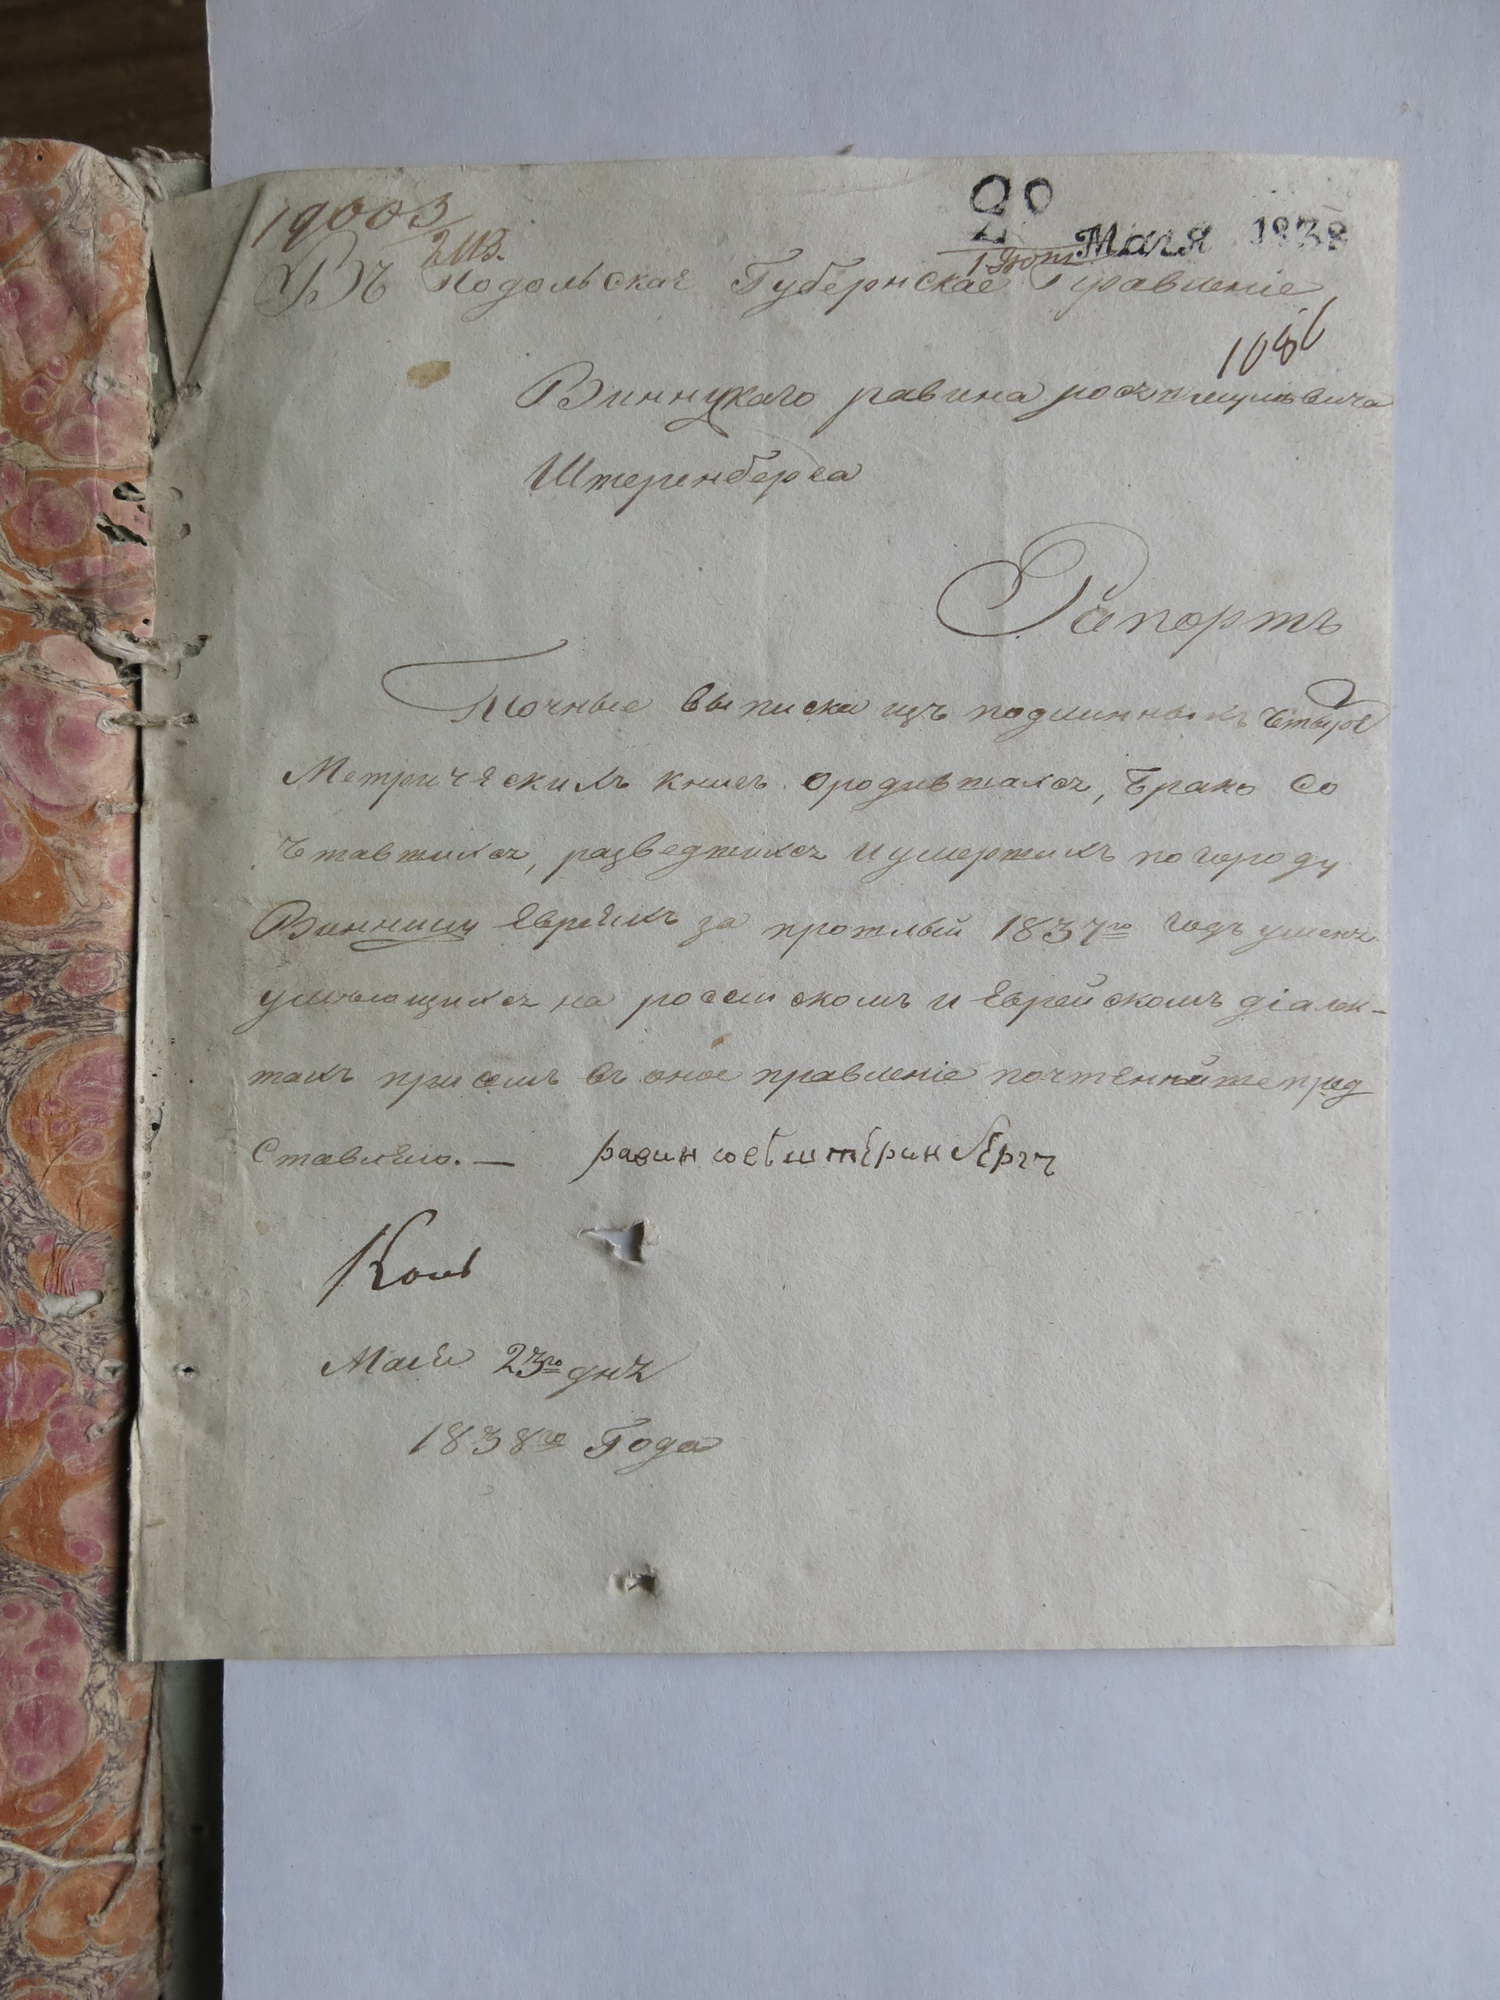 19003
2 Мая 1838
Въ Подольская Губернское Правленіе
108
Винуцкаго равина
Штеренберга
Рапортъ
Точные выписки изъ подлинныхъ Четырѣ
Метрическихъ книгъ ородившахся, Брако Со
Четавшихся, разведшихся и умершихъ по городу
Винницы Евреяхъ за прошлый 1837го годъ
на россійскомъ и Еврейскомъ діалек-
тахъ при семъ въ оное правленіе почтеннѣйше пред
Ставляю. — равин штеринберг
Маія 23го дня
1838го Года